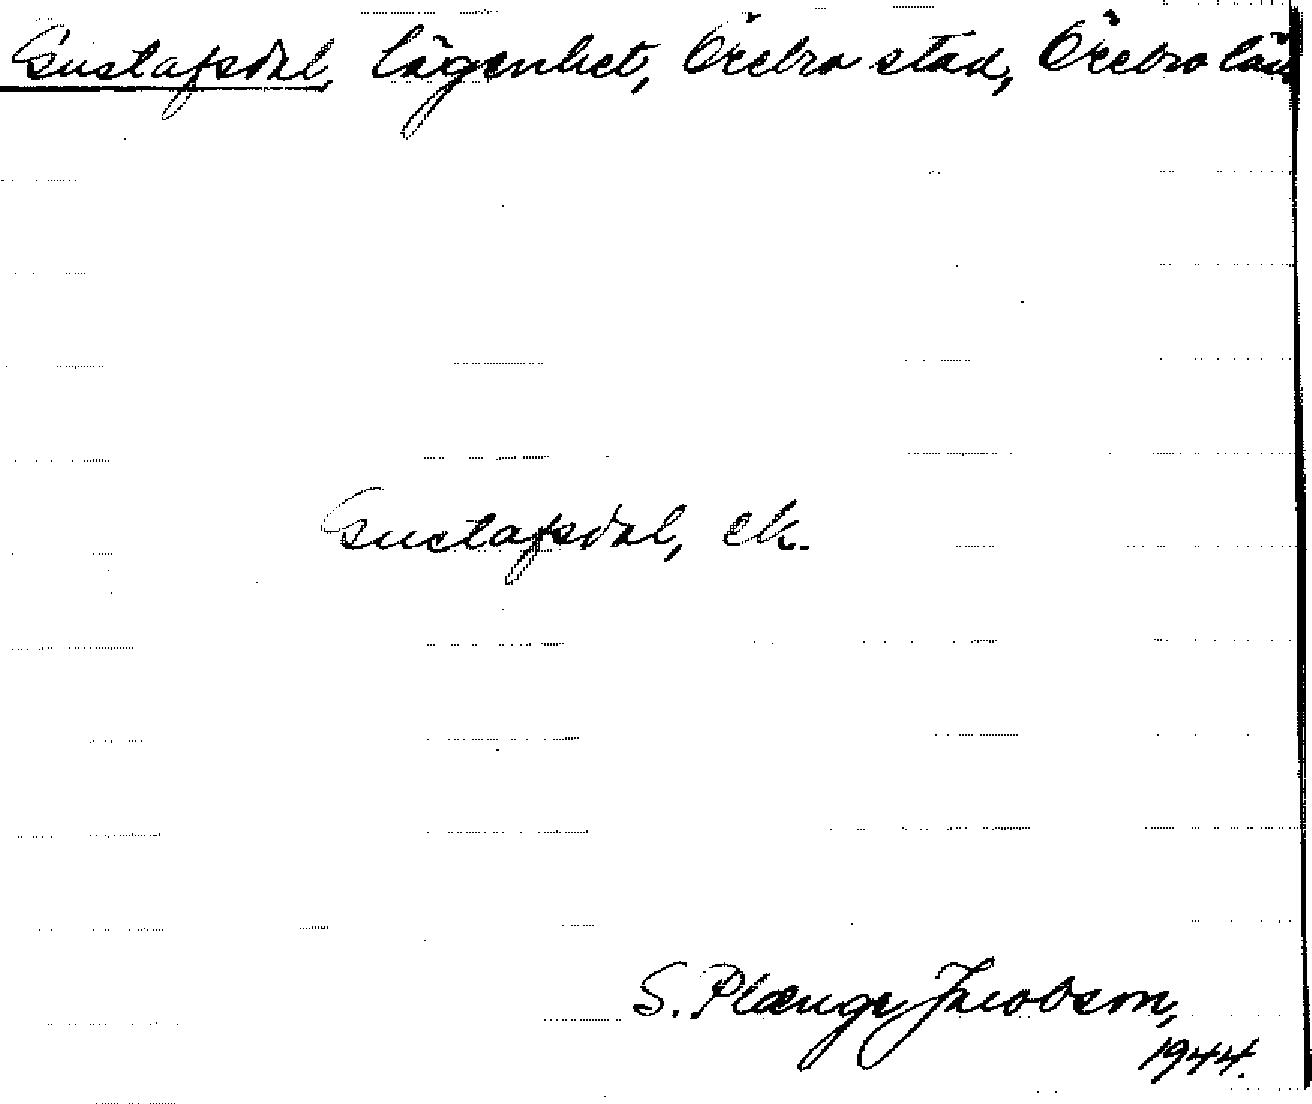 Gustafsdal, lägenhet, Örebro stad, Örebro län
Gustafsdal, ek.
S. Plænge Jacobson,
1944.